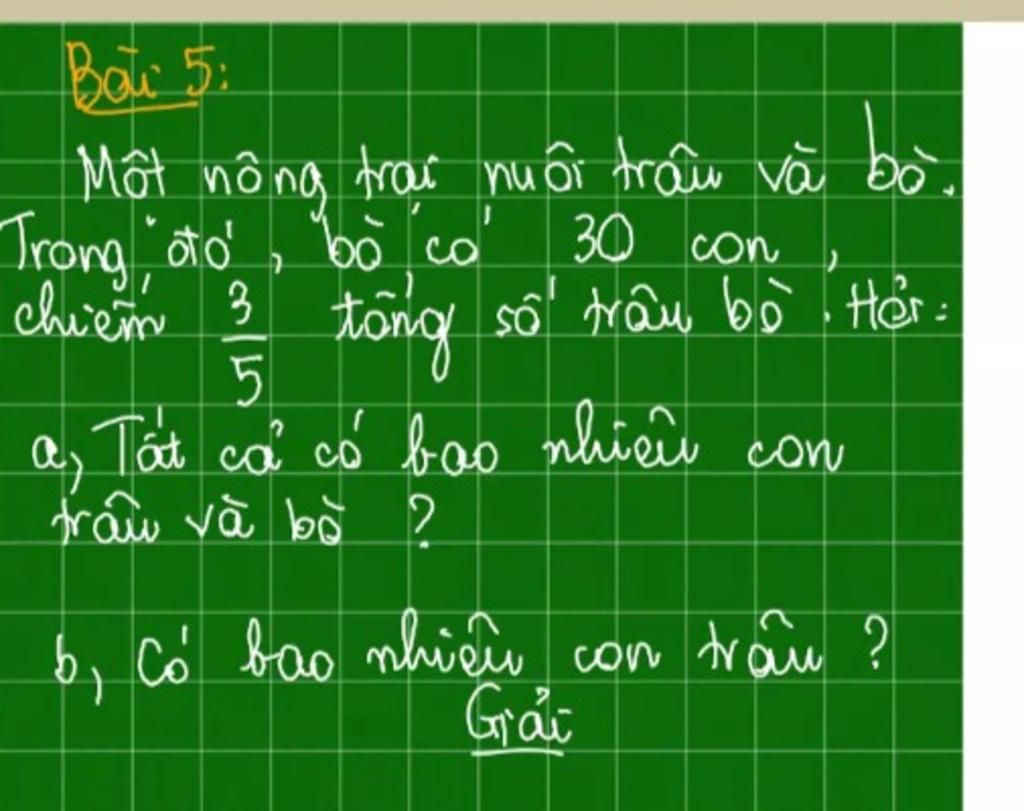 Bài 5:
Một nông trại nuôi trâu và bò.
Trong đó, bò có 30 con,
chiếm 3/5 tổng số trâu bò. Hỏi:
a, Tất cả có bao nhiêu con
trâu và bò ?
b, Có bao nhiêu con trâu ?
Giải